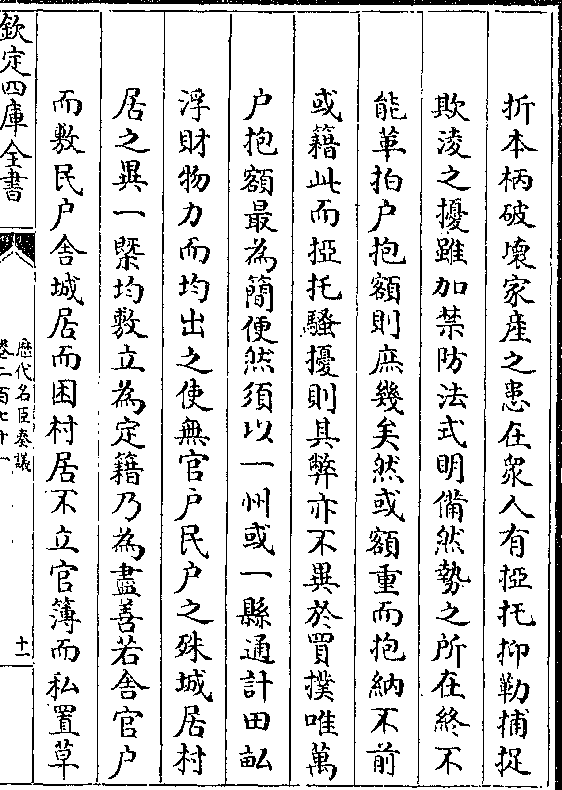 折本柄破壞家産之患在衆人有掗托抑勒捕捉
欺淩之擾雖加禁防法式明備然勢之所在終不
能革拍户抱額則庶幾矣然或額重而抱納不前
或籍此而掗托騷擾則其弊亦不異於買撲唯萬
户抱額最為簡便然須以一州或一縣通計田畆
浮財物力而均出之使無官户民户之殊城居村
居之異一槩均敷立為定籍乃為盡善若舎官户
而敷民户舎城居而困村居不立官簿而私置草
欽定四庫全書
歷代名臣奏議
卷二百七十一
十一